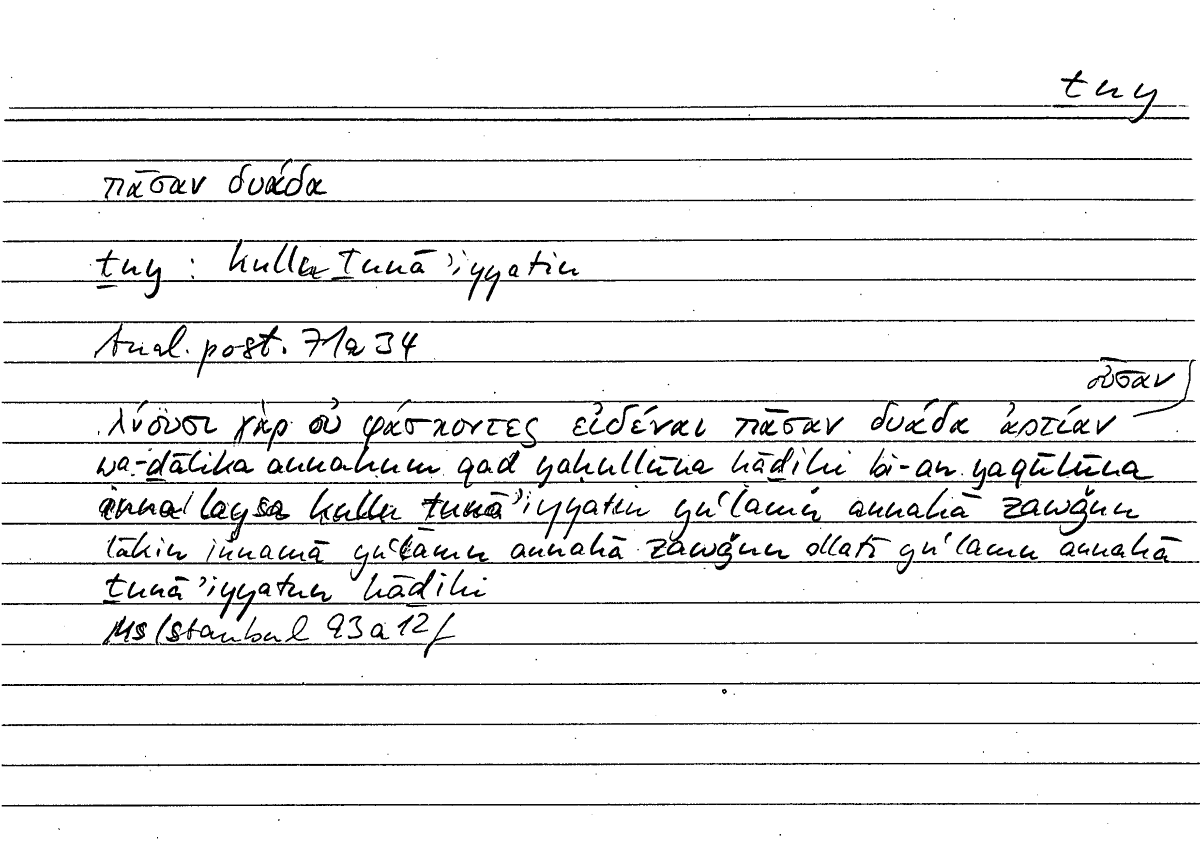 ṯny
πᾶσαν δυάδα
ṯny : kulla ṯunāʾiyyatin
Anal. post. 71a34
οὖσαν
λύουσι γὰρ οὐ φάσκοντες εἰδέναι πᾶσαν δυάδα ἀρτίαν
wa-ḏālika annahum qad yaḥullūna hāḏihi bi-an yaqūlūna
inna laysa kullu ṯunāʾiyyatin yuʿlamu annahā zawǧun
lākin innamā yuʿlamu annahā zawǧun allatī yuʿlamu annahā
ṯunāʾiyyatun hāḏihi
Ms Istanbul 93a12f